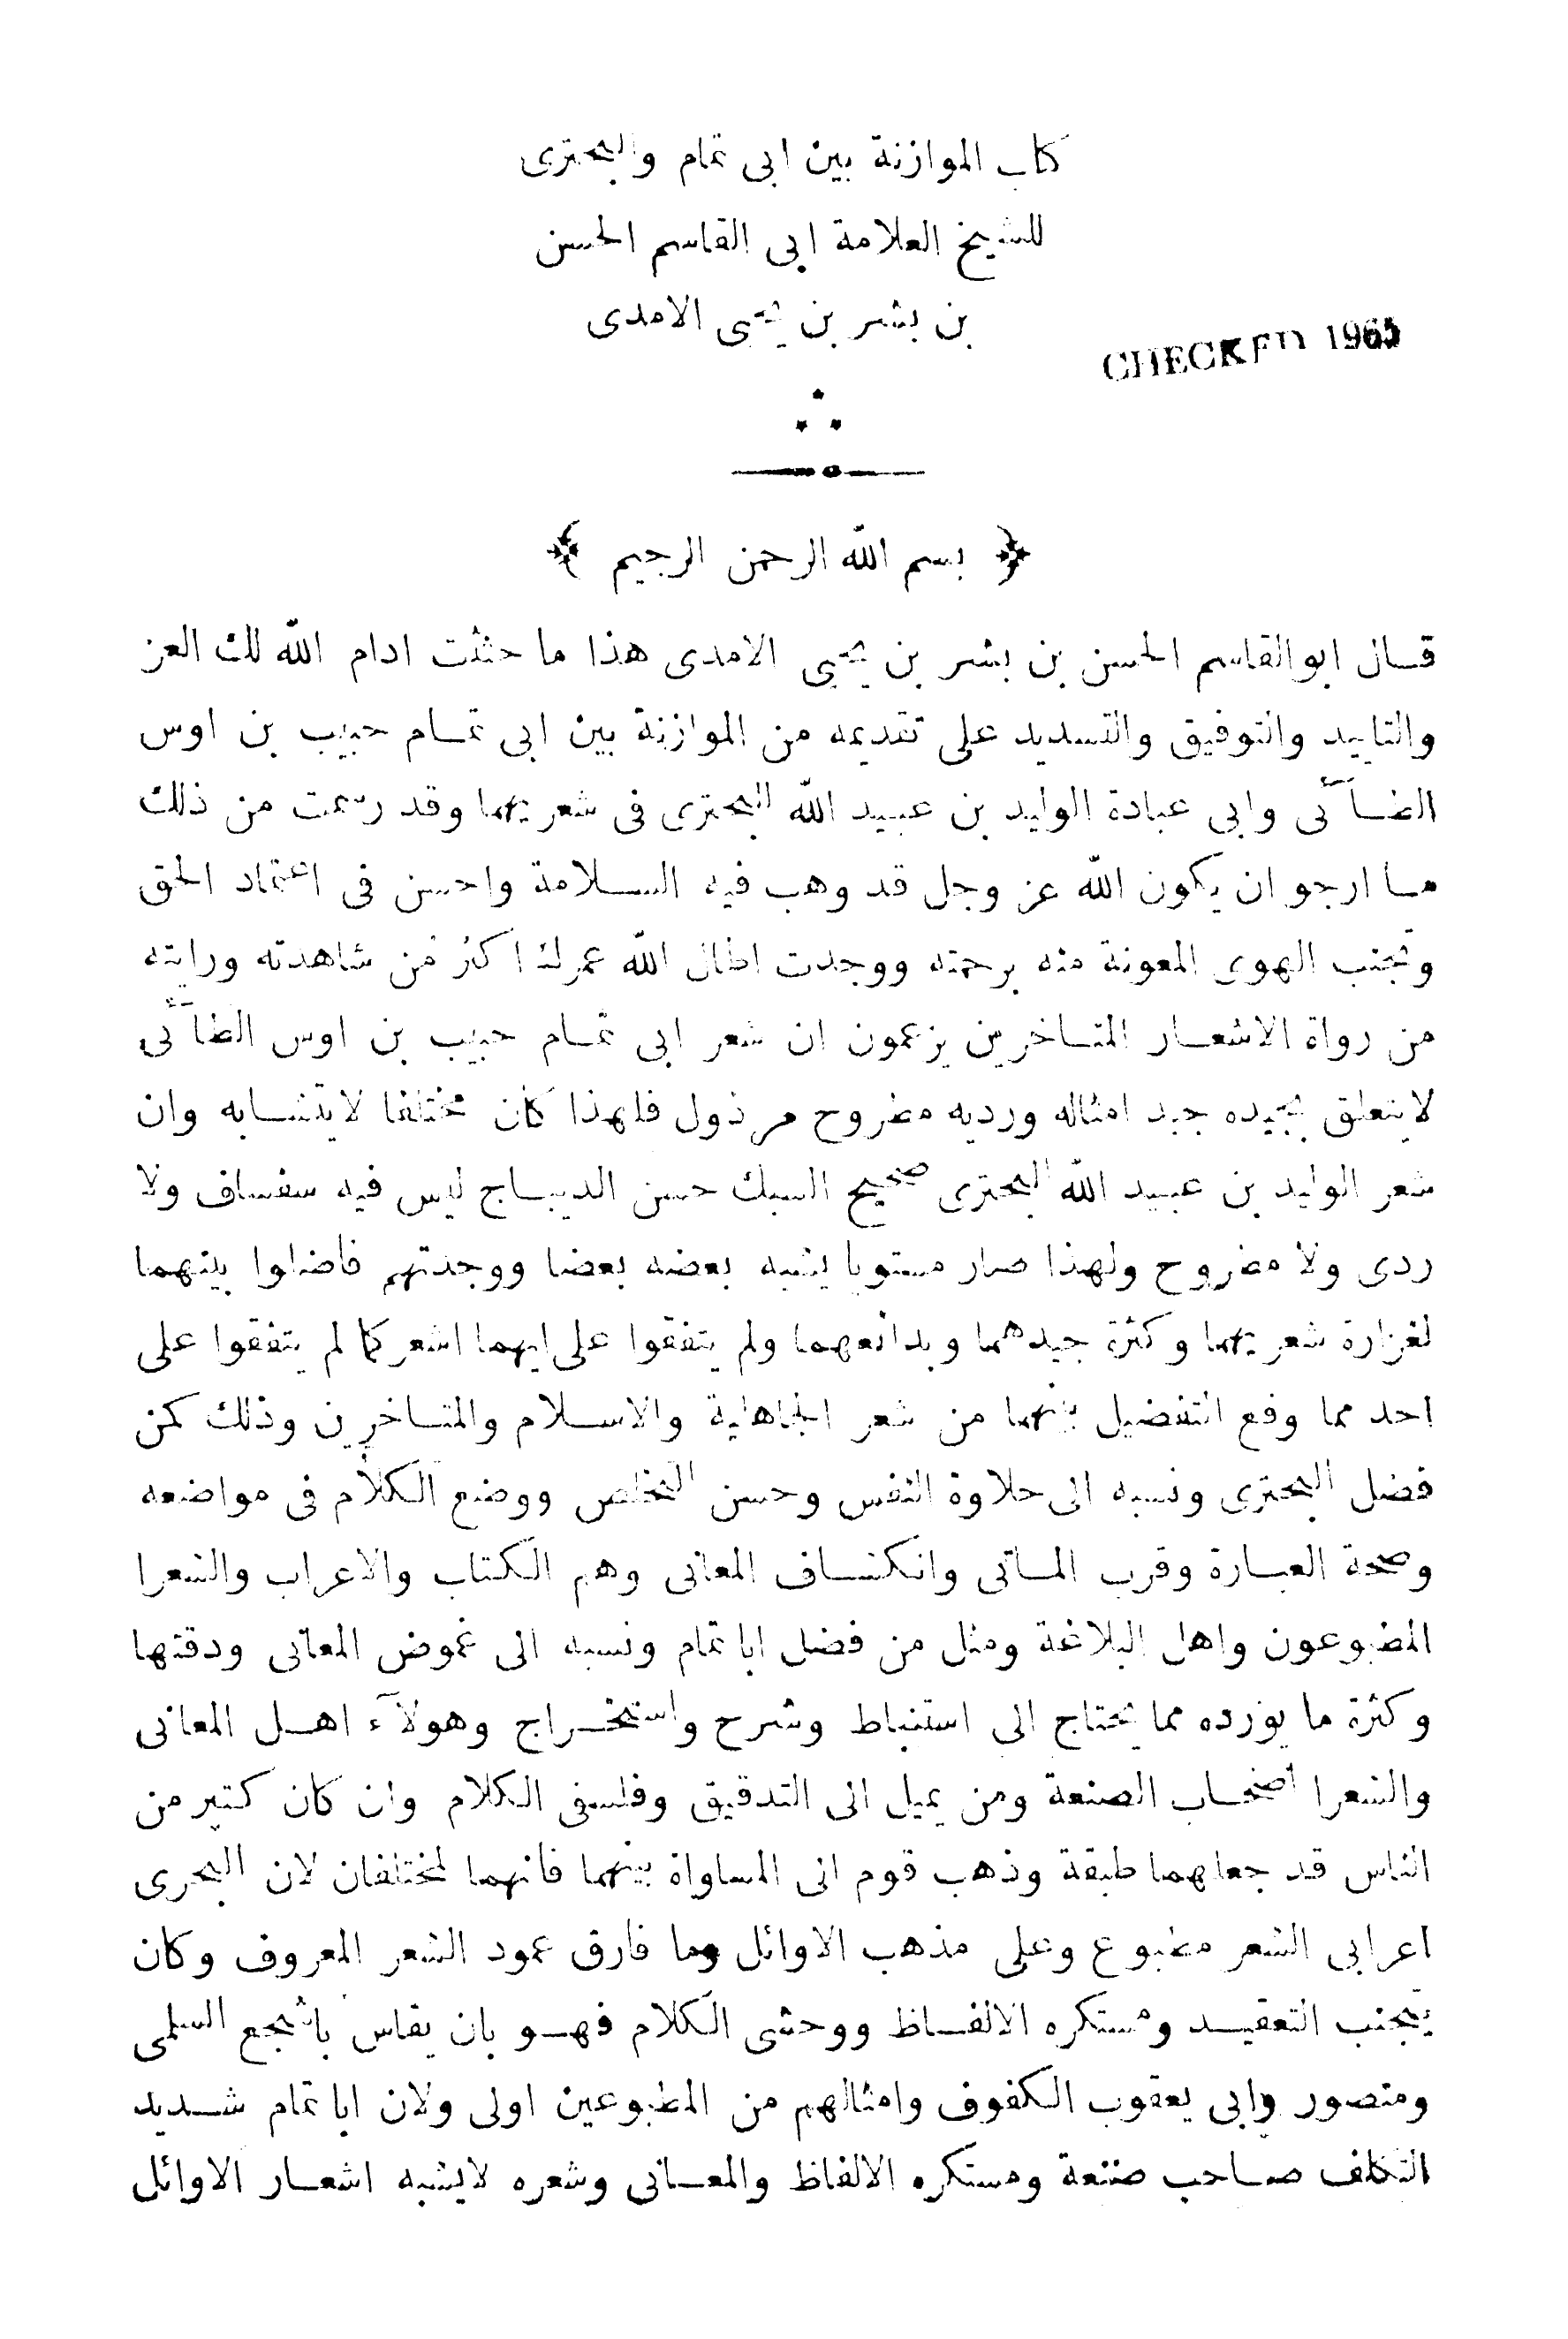 كتاب الموازنة بين ابى تمام والبحترى
للشيخ العلامة ابى القاسم الحسن
بن بشر بن يحيى الامدى
CHECKED 1965
﴿ بسم الله الرحمن الرحيم ﴾
قال ابوالقاسم الحسن بن بشر بن يحيى الامدى هذا ما حثثت ادام الله لك العز
والتاييد والتوفيق والتسديد على تقديمه من الموازنة بين ابى تمام حبيب بن اوس
الطآئى وابى عبادة الوليد بن عبيد الله البحترى فى شعريهما وقد رسمت من ذلك
ما ارجو ان يكون الله عز وجل قد وهب فيه السلامة واحسن فى اعتماد الحق
وتجنب الهوى المعونة منه برحمته ووجدت اطال الله عمرك اكثر من شاهدته ورايته
من رواة الاشعار المتاخرين يزعمون ان شعر ابى تمام حبيب بن اوس الطآئى
لايتعلق بجيده جيد امثاله ورديه مطروح مرذول فلهذا كان مختلفا لايتشابه وان
شعر الوليد بن عبيد الله البحترى صحيح السبك حسن الديباج ليس فيه سفساف ولا
ردى ولا مطروح ولهذا صار مستويا يشبه بعضه بعضا ووجدتهم فاضلوا بينهما
لغزارة شعريهما وكثرة جيدهما وبدائعهما ولم يتفقوا على ايهما اشعر كما لم يتفقوا على
احد مما وقع التفضيل بينهما من شعر الجاهلية والاسلام والمتاخرين وذلك كمن
فضل البحترى ونسبه الى حلاوة النفس وحسن التخلص ووضع الكلام فى مواضعه
وصحة العبارة وقرب المآتى وانكشاف المعانى وهم الكتاب والاعراب والشعرا
المطبوعون واهل البلاغة ومثل من فضل ابا تمام ونسبه الى غموض المعانى ودقتها
وكثرة ما يورده مما يحتاج الى استنباط وشرح واستخراج وهولآء اهل المعانى
والشعرا اصحاب الصنعة ومن يميل الى التدقيق وفلسفى الكلام وان كان كثير من
الناس قد جعلهما طبقة وذهب قوم الى المساواة بينهما فانهما لمختلفان لان البحرى
اعرابى الشعر مطبوع وعلى مذهب الاوائل وما فارق عمود الشعر المعروف وكان
يتجنب التعقيد ومستكره الالفاظ ووحشى الكلام فهو بان يقاس باشجع السلمى
ومنصور وابى يعقوب الكفوف وامثالهم من المطبوعين اولى ولان ابا تمام شديد
التكلف صاحب صنعة ومستكره الالفاظ والمعانى وشعره لايشبه اشعار الاوائل